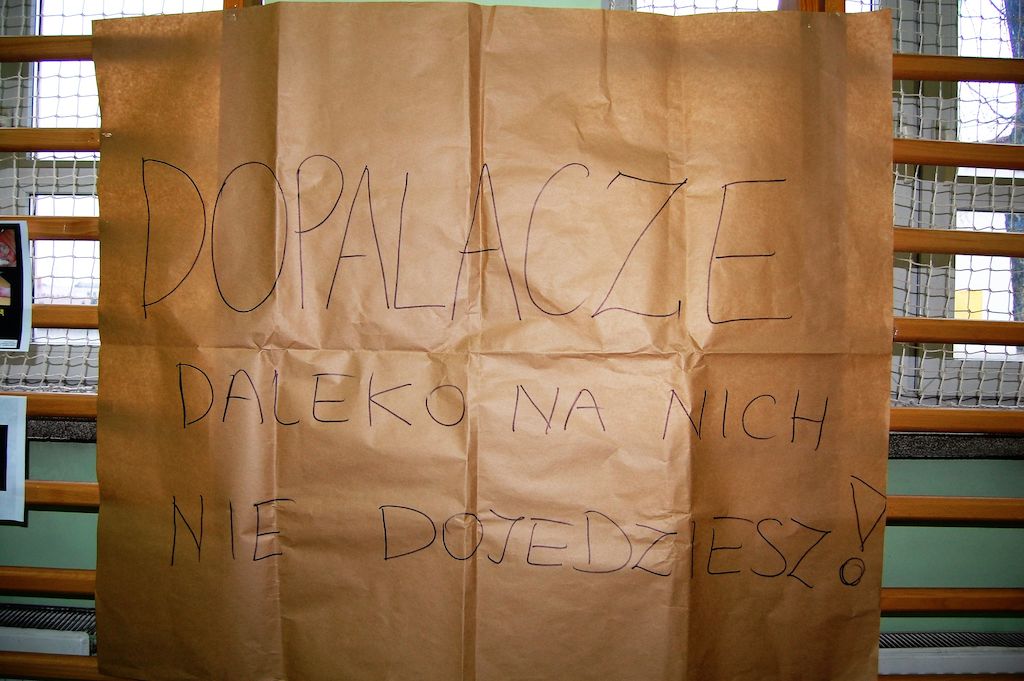 DOPALACZE
DALEKO NA NICH
NIE DOJEDZIESZ!